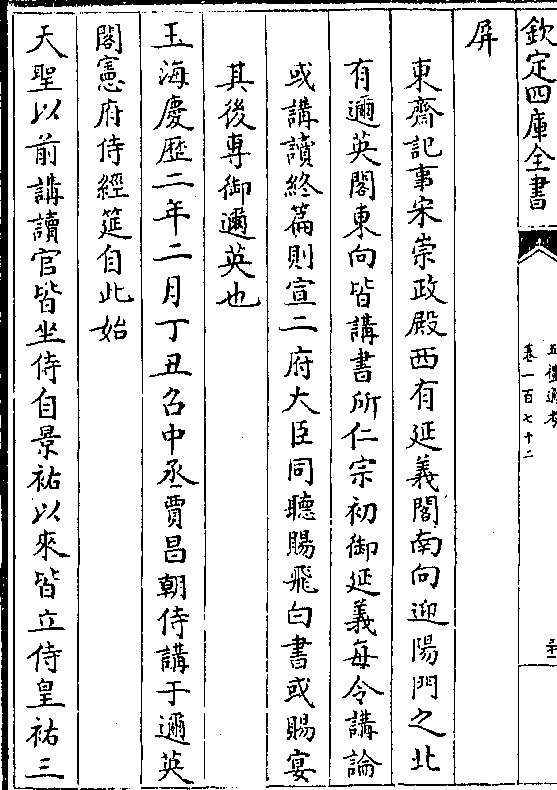 欽定四庫全書
五禮通考
卷一百七十二
屏
東齋記事宋崇政殿西有延義閣南向迎陽門之北
有邇英閣東向皆講書所仁宗初御延義每令講論
或講讀終篇則宣二府大臣同聽賜飛白書或賜宴
其後專御邇英也
玉海慶歴二年二月丁丑召中丞賈昌朝侍講于邇英
閣憲府侍經筵自此始
天聖以前講讀官皆坐侍自景祐以來皆立侍皇祐三